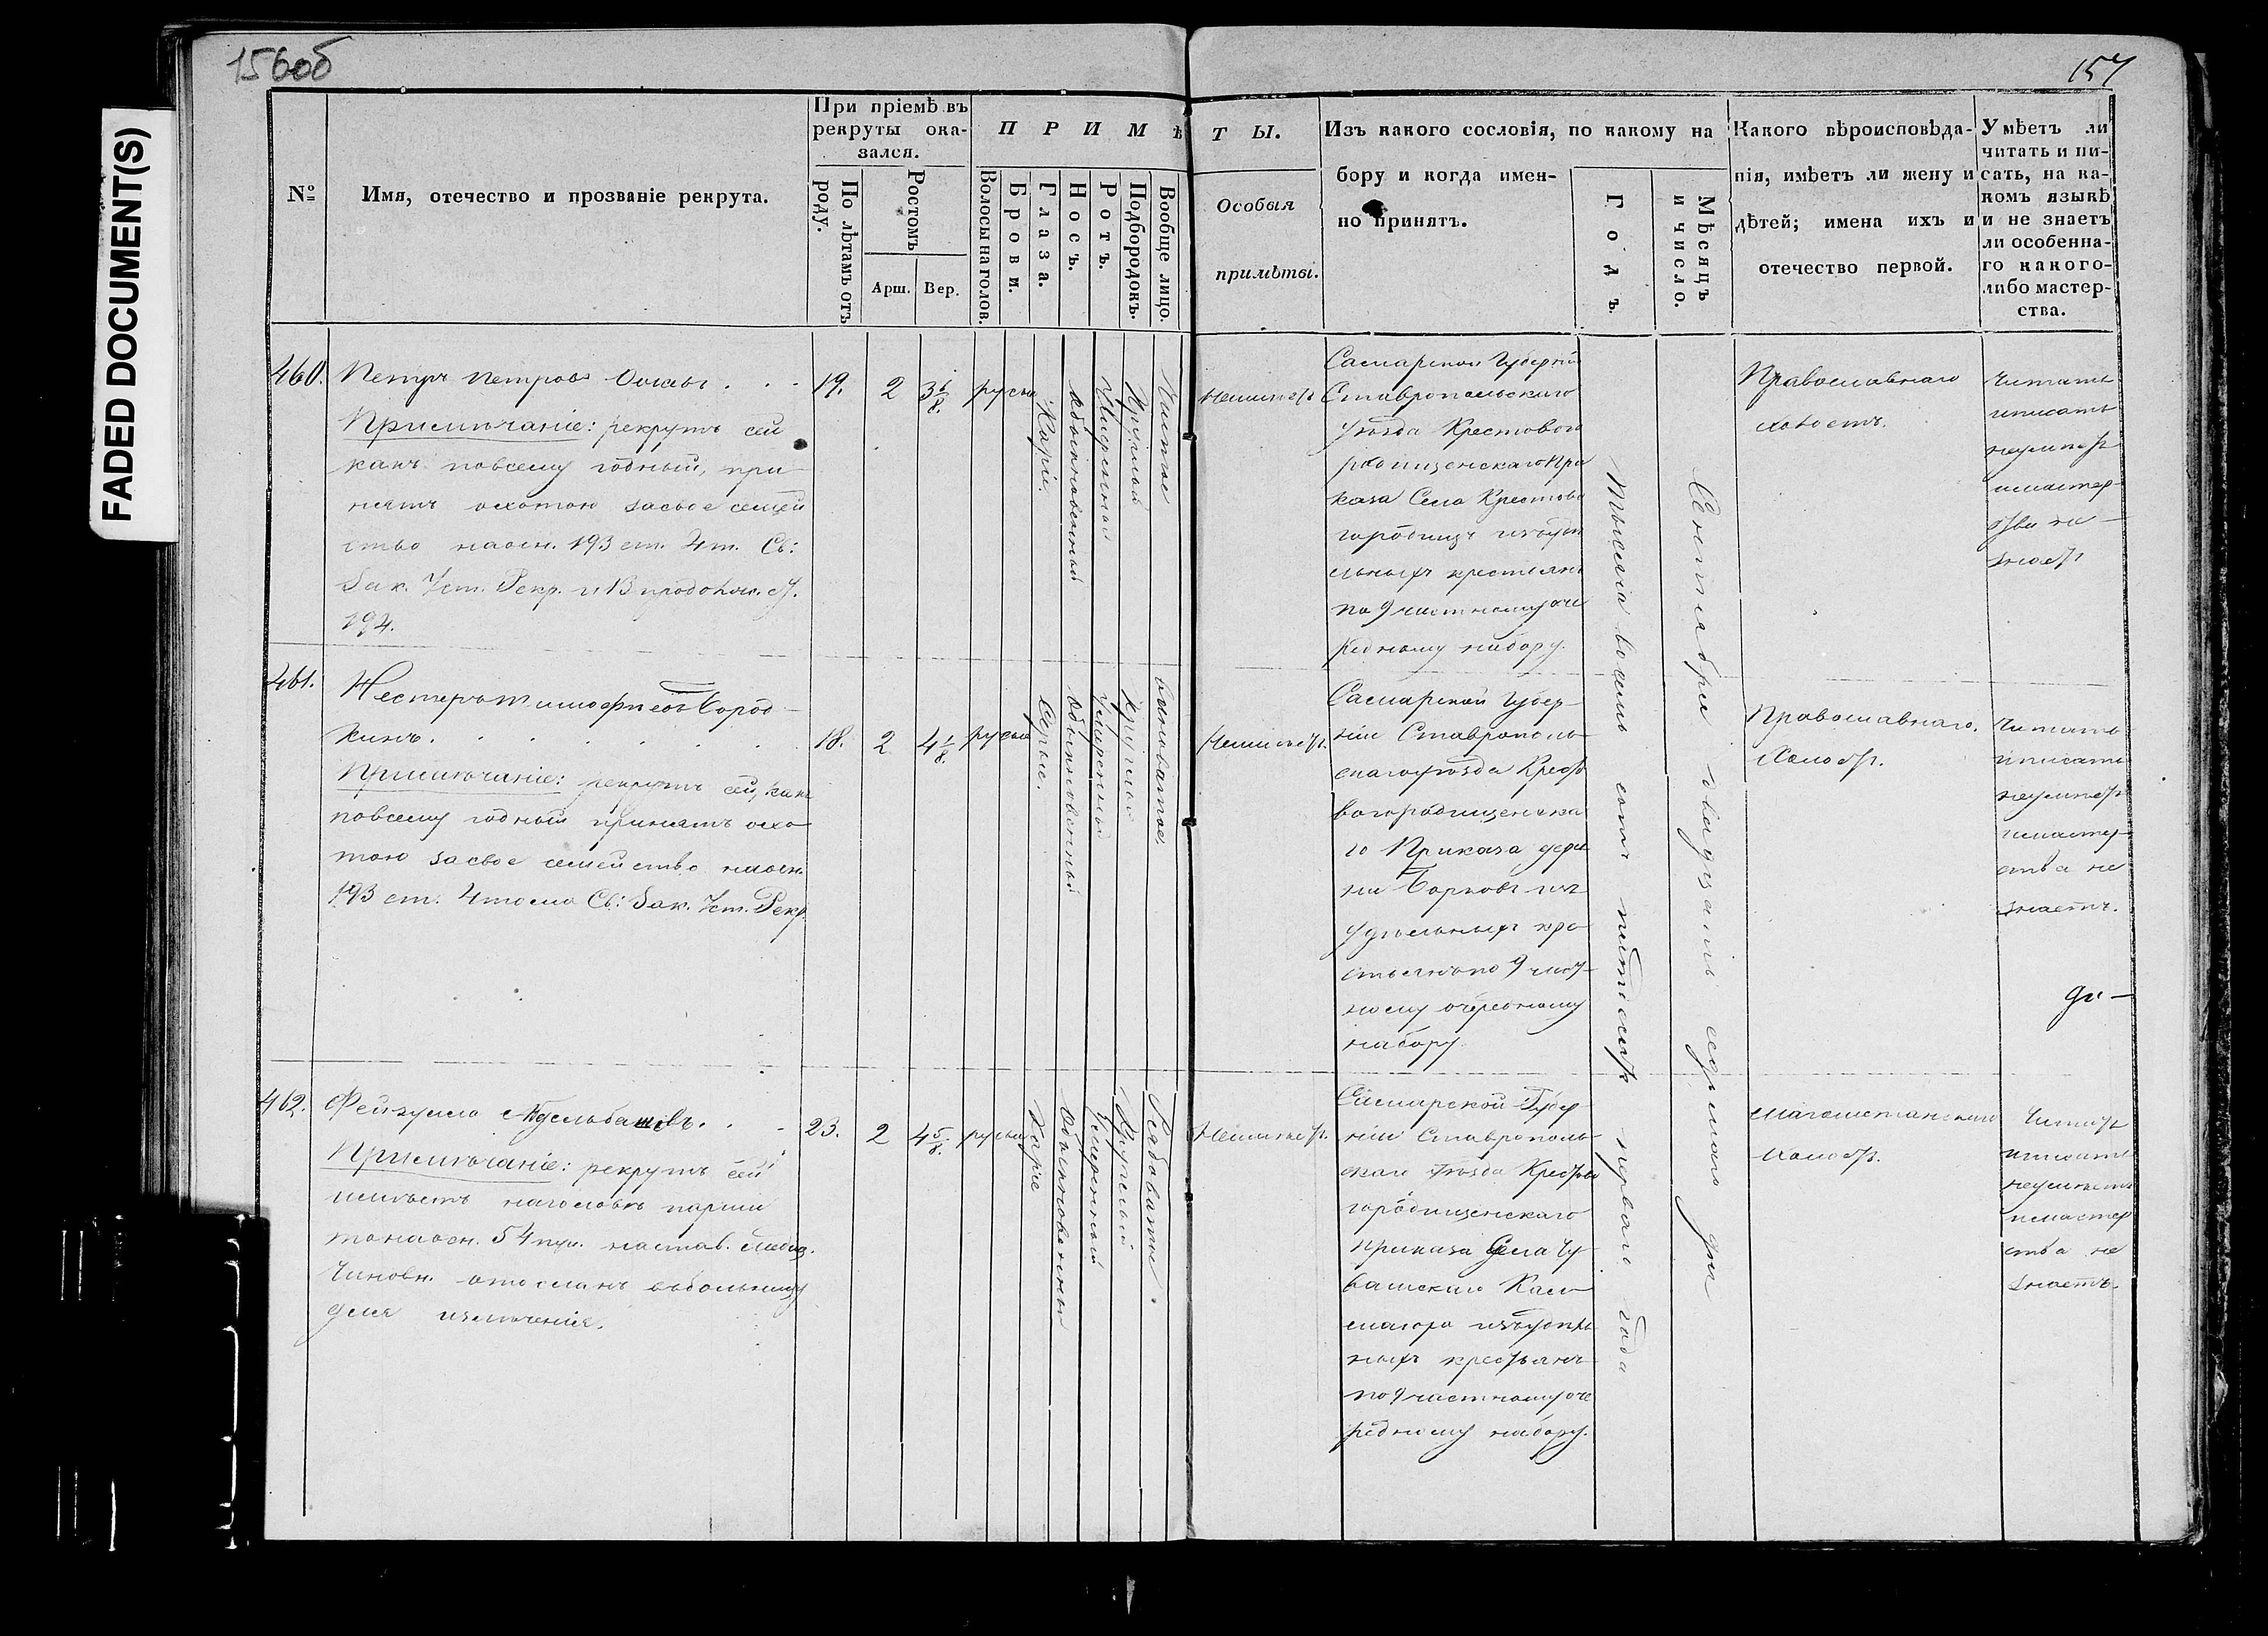 FADED DOCUMENT(S)
156об
157
№
Имя, отечество и прозваніе рекрута.
При пріемѣ въ
рекруты ока-
зался.
По лѣтамъ отъ
роду.
Ростомъ
Арш.
Вер.
ПРИМѢТЫ.
Волосы на голов.
Брови.
Глаза.
Носъ.
Ротъ.
Подбородокъ.
Вообще лицо.
Особыя
примѣты.
Изъ какого сословія, по какому на
бору и когда имен-
но принятъ.
Годъ.
Мѣсяцъ
и число.
Какого вѣроисповѣда-
нія, имѣетъ ли жену и
дѣтей; имена ихъ и
отечество первой.
Умѣетъ ли
читать и пи-
сать, на ка-
комъ языкѣ
и не знаетъ
ли особенна-
го какого-
либо мастер-
ства.
460.
Петръ Петровъ
Примѣчаніе: рекрутъ сей
какъ повсему годный, при
нятъ охотою засвое семей
ство наосн. 193 ст. 4 т. Св:
Зак. Уст. Рекр. и продолж. ст.
194.
19.
2
3 6/8.
русые
Каріе.
Обыкновенный
Умеренный
Круглый
Чистое
Неимѣетъ
Самарской Губерніи
Ставропольскаго
уѣзда Крестового
родищенскаго При
каза Села Крестово
городищъ изъудѣ
льныхъ крестьянъ
по 9 частному оче
редному набору.
Православнаго
холостъ.
Читать
иписать
неумѣетъ
имастер
ства не
знаетъ
461.
Нестеръ Тимофѣевъ Бород
кинъ.
Примѣчаніе: рекрутъ сей, какъ
повсему годный принятъ охо
тою засвое семейство наосн.
193 ст. 4 тома Св: Зак. Уст. Рекр.
18.
2
4 1/8.
русые
Серые.
Обыкновенный
Умеренный
Круглый
Неимѣетъ.
Самарской Губер-
ніи Ставрополь-
скаго уѣзда Кресто
вогородищенска
го Приказа дерев
ни Борковъ изъ
удѣльныхъ кре
стьянъ по 9 част-
ному очередному
набору.
Православнаго.
Холостъ.
Читать
иписать
неумѣетъ
имастер-
ства не
знаетъ.
462.
Фейзулла
Примѣчаніе: рекрутъ сей
имѣетъ наголовѣ парши
то наосн. 54 пун. настав. Медиц.
Чиновн. отосланъ вобольницу
для излѣченія.
23.
2
4 5/8.
русые
Каріе
Обыкновенный
Умеренный
Круглый
Рябоватое.
Неимѣетъ.
Самарской Губер-
ніи Ставрополь-
скаго уѣзда Кресто
городищенскаго
приказа Села Чу
вашскаго Кал
маюра изъудѣль
ныхъ крестьянъ
по 9 частному оче
редному набору.
Магометанскаго
холостъ.
Читать
иписать
неумѣетъ
имастер
ства не
знаетъ.
Тысяча восемь сотъ пятьдесятъ перваго года
Сентября двадцать седьмаго дня